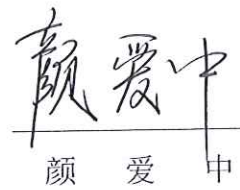 颜爱中
颜 爱 中